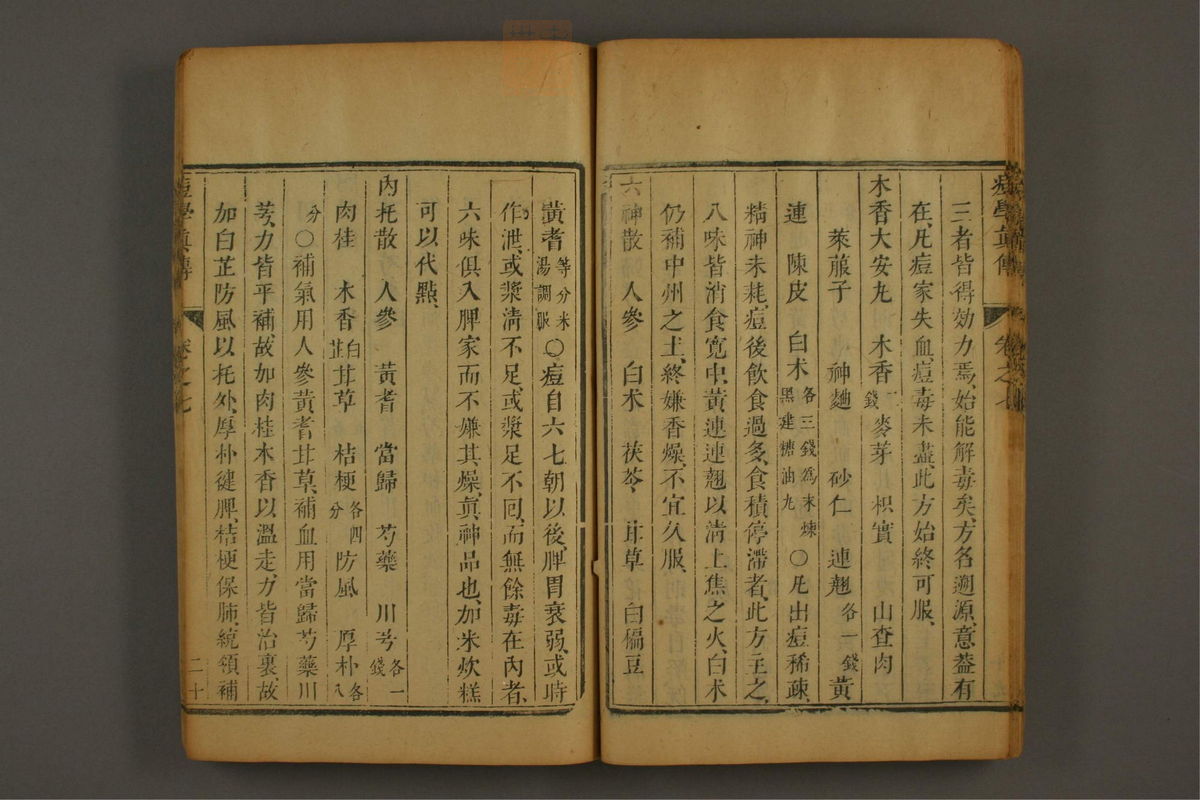 痘學眞傳 卷之七
三者皆得効力焉、始能解毒矣、方名遡源、意蓋有
在、凡痘家失血、痘毒未盡、此方始終可服、
木香大安丸 木香一錢 麥芽 枳實 山查肉
萊菔子 神麯 砂仁 連翹各一錢 黃
連 陳皮 白朮各三錢爲末煉黑建糖油丸 ○凡出痘稀疎、
精神未耗、痘後飲食過多、食積停滯者、此方主之、
八味皆消食寬中、黃連連翹以淸上焦之火、白朮
仍補中州之土、終嫌香燥、不宜久服、
六神散 人參 白朮 茯苓 甘草 白扁豆
黃耆等分米湯調服○痘自六七朝以後、脾胃衰弱、或時
作泄、或漿淸不足、或漿足不回、而無餘毒在內者、
六味俱入脾家而不嫌其燥、眞神品也、加米炊糕
可以代點、
內托散 人參 黃耆 當歸 芍藥 川芎各一錢
肉桂 木香 白芷 甘草 桔梗各四分 防風 厚朴各八
分○補氣用人參黃耆甘草、補血用當歸芍藥川
芎、力皆平補、故加肉桂木香以溫走力、皆治裏、故
加白芷防風以托外、厚朴健脾、桔梗保肺、統領補
痘學眞傳 卷之七 二十